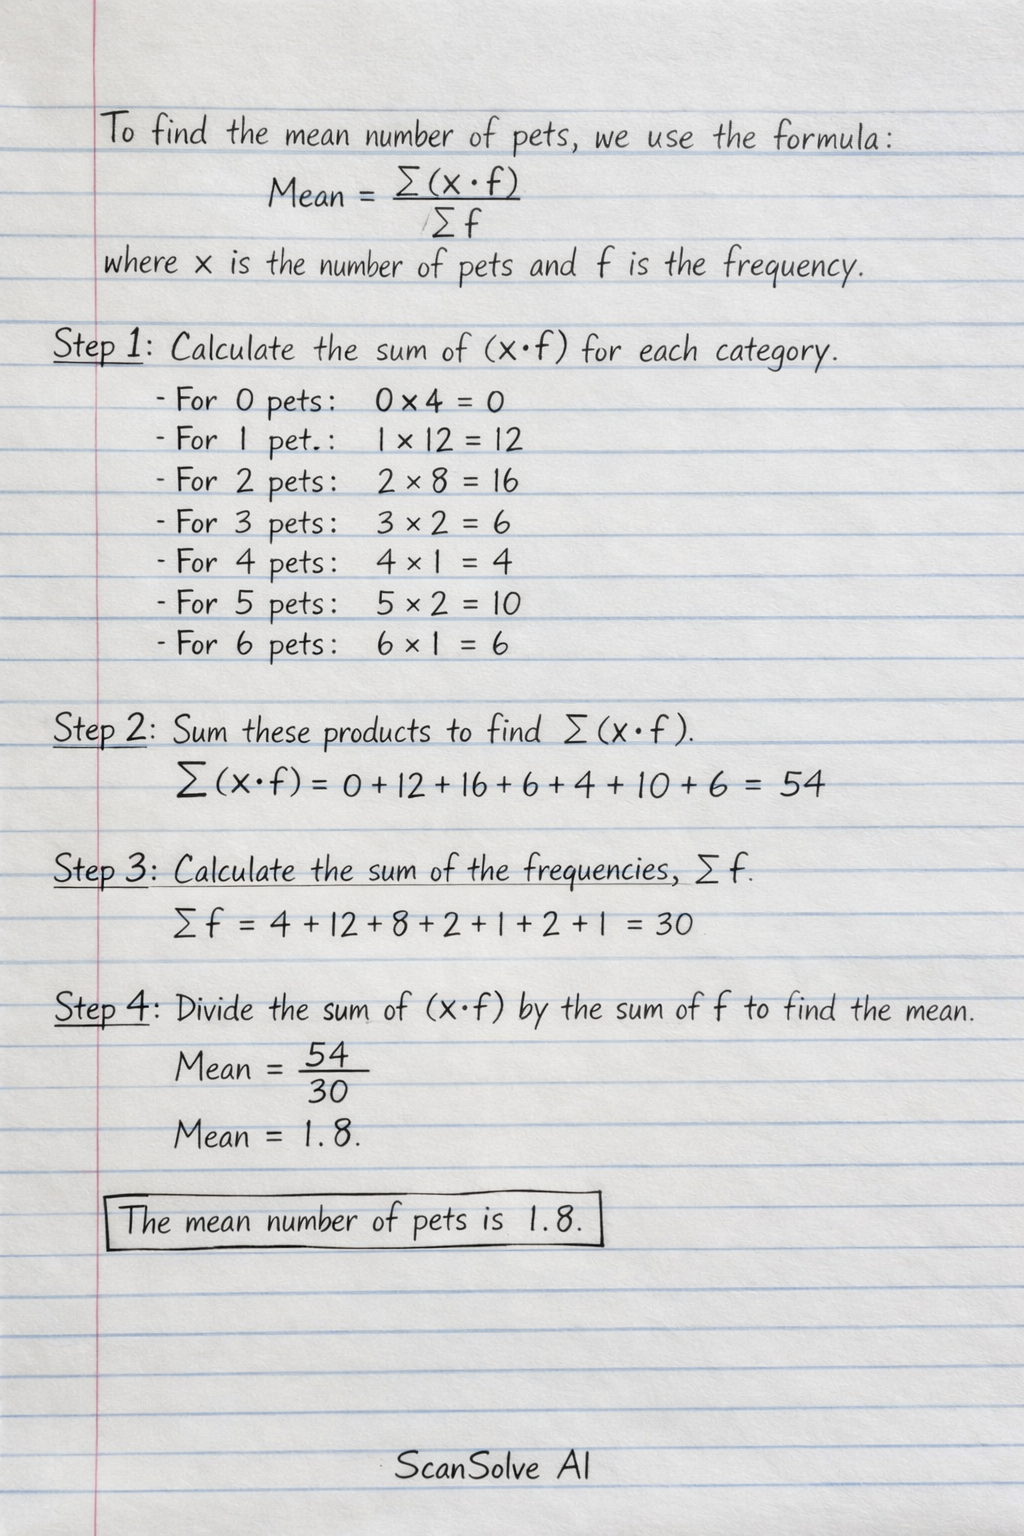 To find the mean number of pets, we use the formula:
Mean = Σ(x·f) / Σf
where x is the number of pets and f is the frequency.
Step 1: Calculate the sum of (x·f) for each category.
- For 0 pets: 0 × 4 = 0
- For 1 pet.: 1 × 12 = 12
- For 2 pets: 2 × 8 = 16
- For 3 pets: 3 × 2 = 6
- For 4 pets: 4 × 1 = 4
- For 5 pets: 5 × 2 = 10
- For 6 pets: 6 × 1 = 6
Step 2: Sum these products to find Σ(x·f).
Σ(x·f) = 0 + 12 + 16 + 6 + 4 + 10 + 6 = 54
Step 3: Calculate the sum of the frequencies, Σf.
Σf = 4 + 12 + 8 + 2 + 1 + 2 + 1 = 30
Step 4: Divide the sum of (x·f) by the sum of f to find the mean.
Mean = 54 / 30
Mean = 1.8.
The mean number of pets is 1.8.
ScanSolve AI